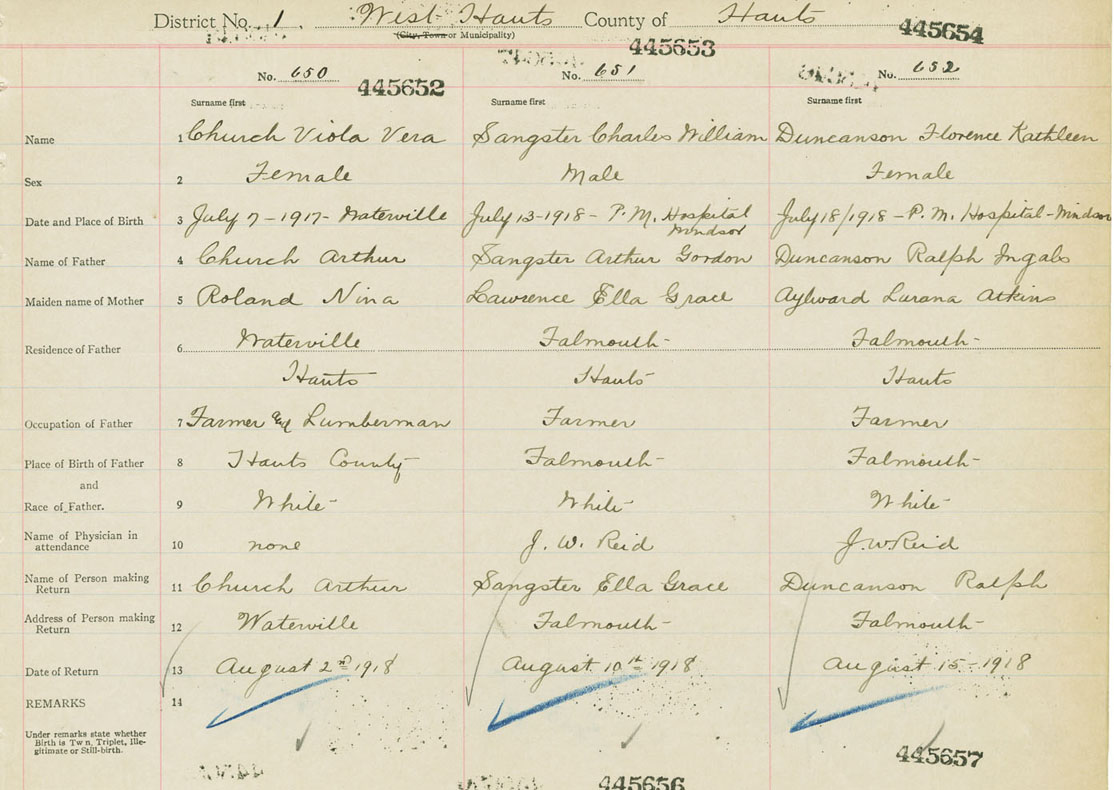 District No. 1 West Hants County of Hants
(City, Town or Municipality)
445654
445653
No. 650 No. 651 No. 652
445652
Surname first Surname first Surname first
Name 1 Church Viola Vera Sangster Charles William Duncanson Florence Kathleen
Sex 2 Female Male Female
Date and Place of Birth 3 July 7-1917- Waterville July 13-1918- P.M. Hospital Windsor July 18/1918 - P.M. Hospital - Windsor
Name of Father 4 Church Arthur Sangster Arthur Gordon Duncanson Ralph
Maiden name of Mother 5 Roland Nina Lawrence Ella Grace Aylward Lurana Atkins
Residence of Father 6 Waterville Falmouth Falmouth
Hants Hants Hants
Occupation of Father 7 Farmer & Lumberman Farmer Farmer
Place of Birth of Father 8 Hants County Falmouth Falmouth
and
Race of Father. 9 White White White
Name of Physician in
attendance 10 none J. W. Reid J. W Reid
Name of Person making
Return 11 Church Arthur Sangster Ella Grace Duncanson Ralph
Address of Person making
Return 12 Waterville Falmouth Falmouth
Date of Return 13 August 2nd 1918 August 10th 1918 August 15-1918
REMARKS 14
Under remarks state whether
Birth is Tw n, Triplet, Ille-
gitimate or Still-birth.
445657
445656